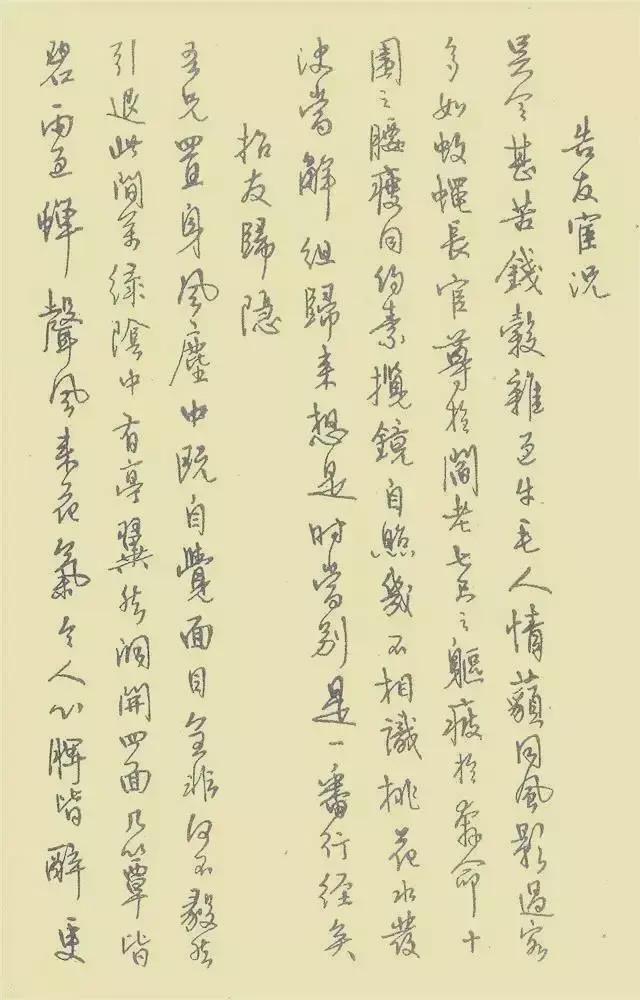 告友宦况
吴令甚苦錢穀雜至牛毛人情藐同風影過客
多如蚊蠅長官尊於閻老七尺之軀疲於奔命十
圍之腰瘦同約素攬鏡自照幾不相識桃花水發
决當解組歸来想是时當别是一番行径矣
招友歸隐
吾兄置身風塵中既自覺面目全非何不毅然
引退此間萬綠陰中有亭翼然洞開四面几簟皆
碧雨至蟬聲風来花氣令人心脾皆醉更